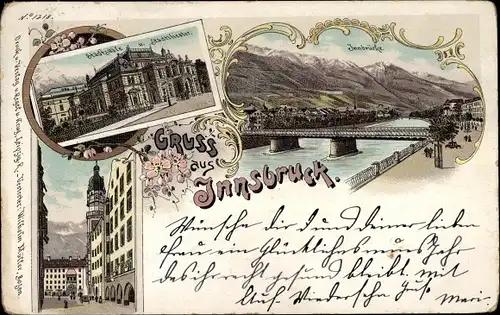 No. 1218.
Stadtsäle u. Stadttheater.
Innbrücke.
Gruss
aus
Innsbruck.
Wünsche dir und deiner lieben
frau ein Glückliches neues Jahr
das ihr recht gesund bleibt. mit
Auf Wiedersehn Gus Mari